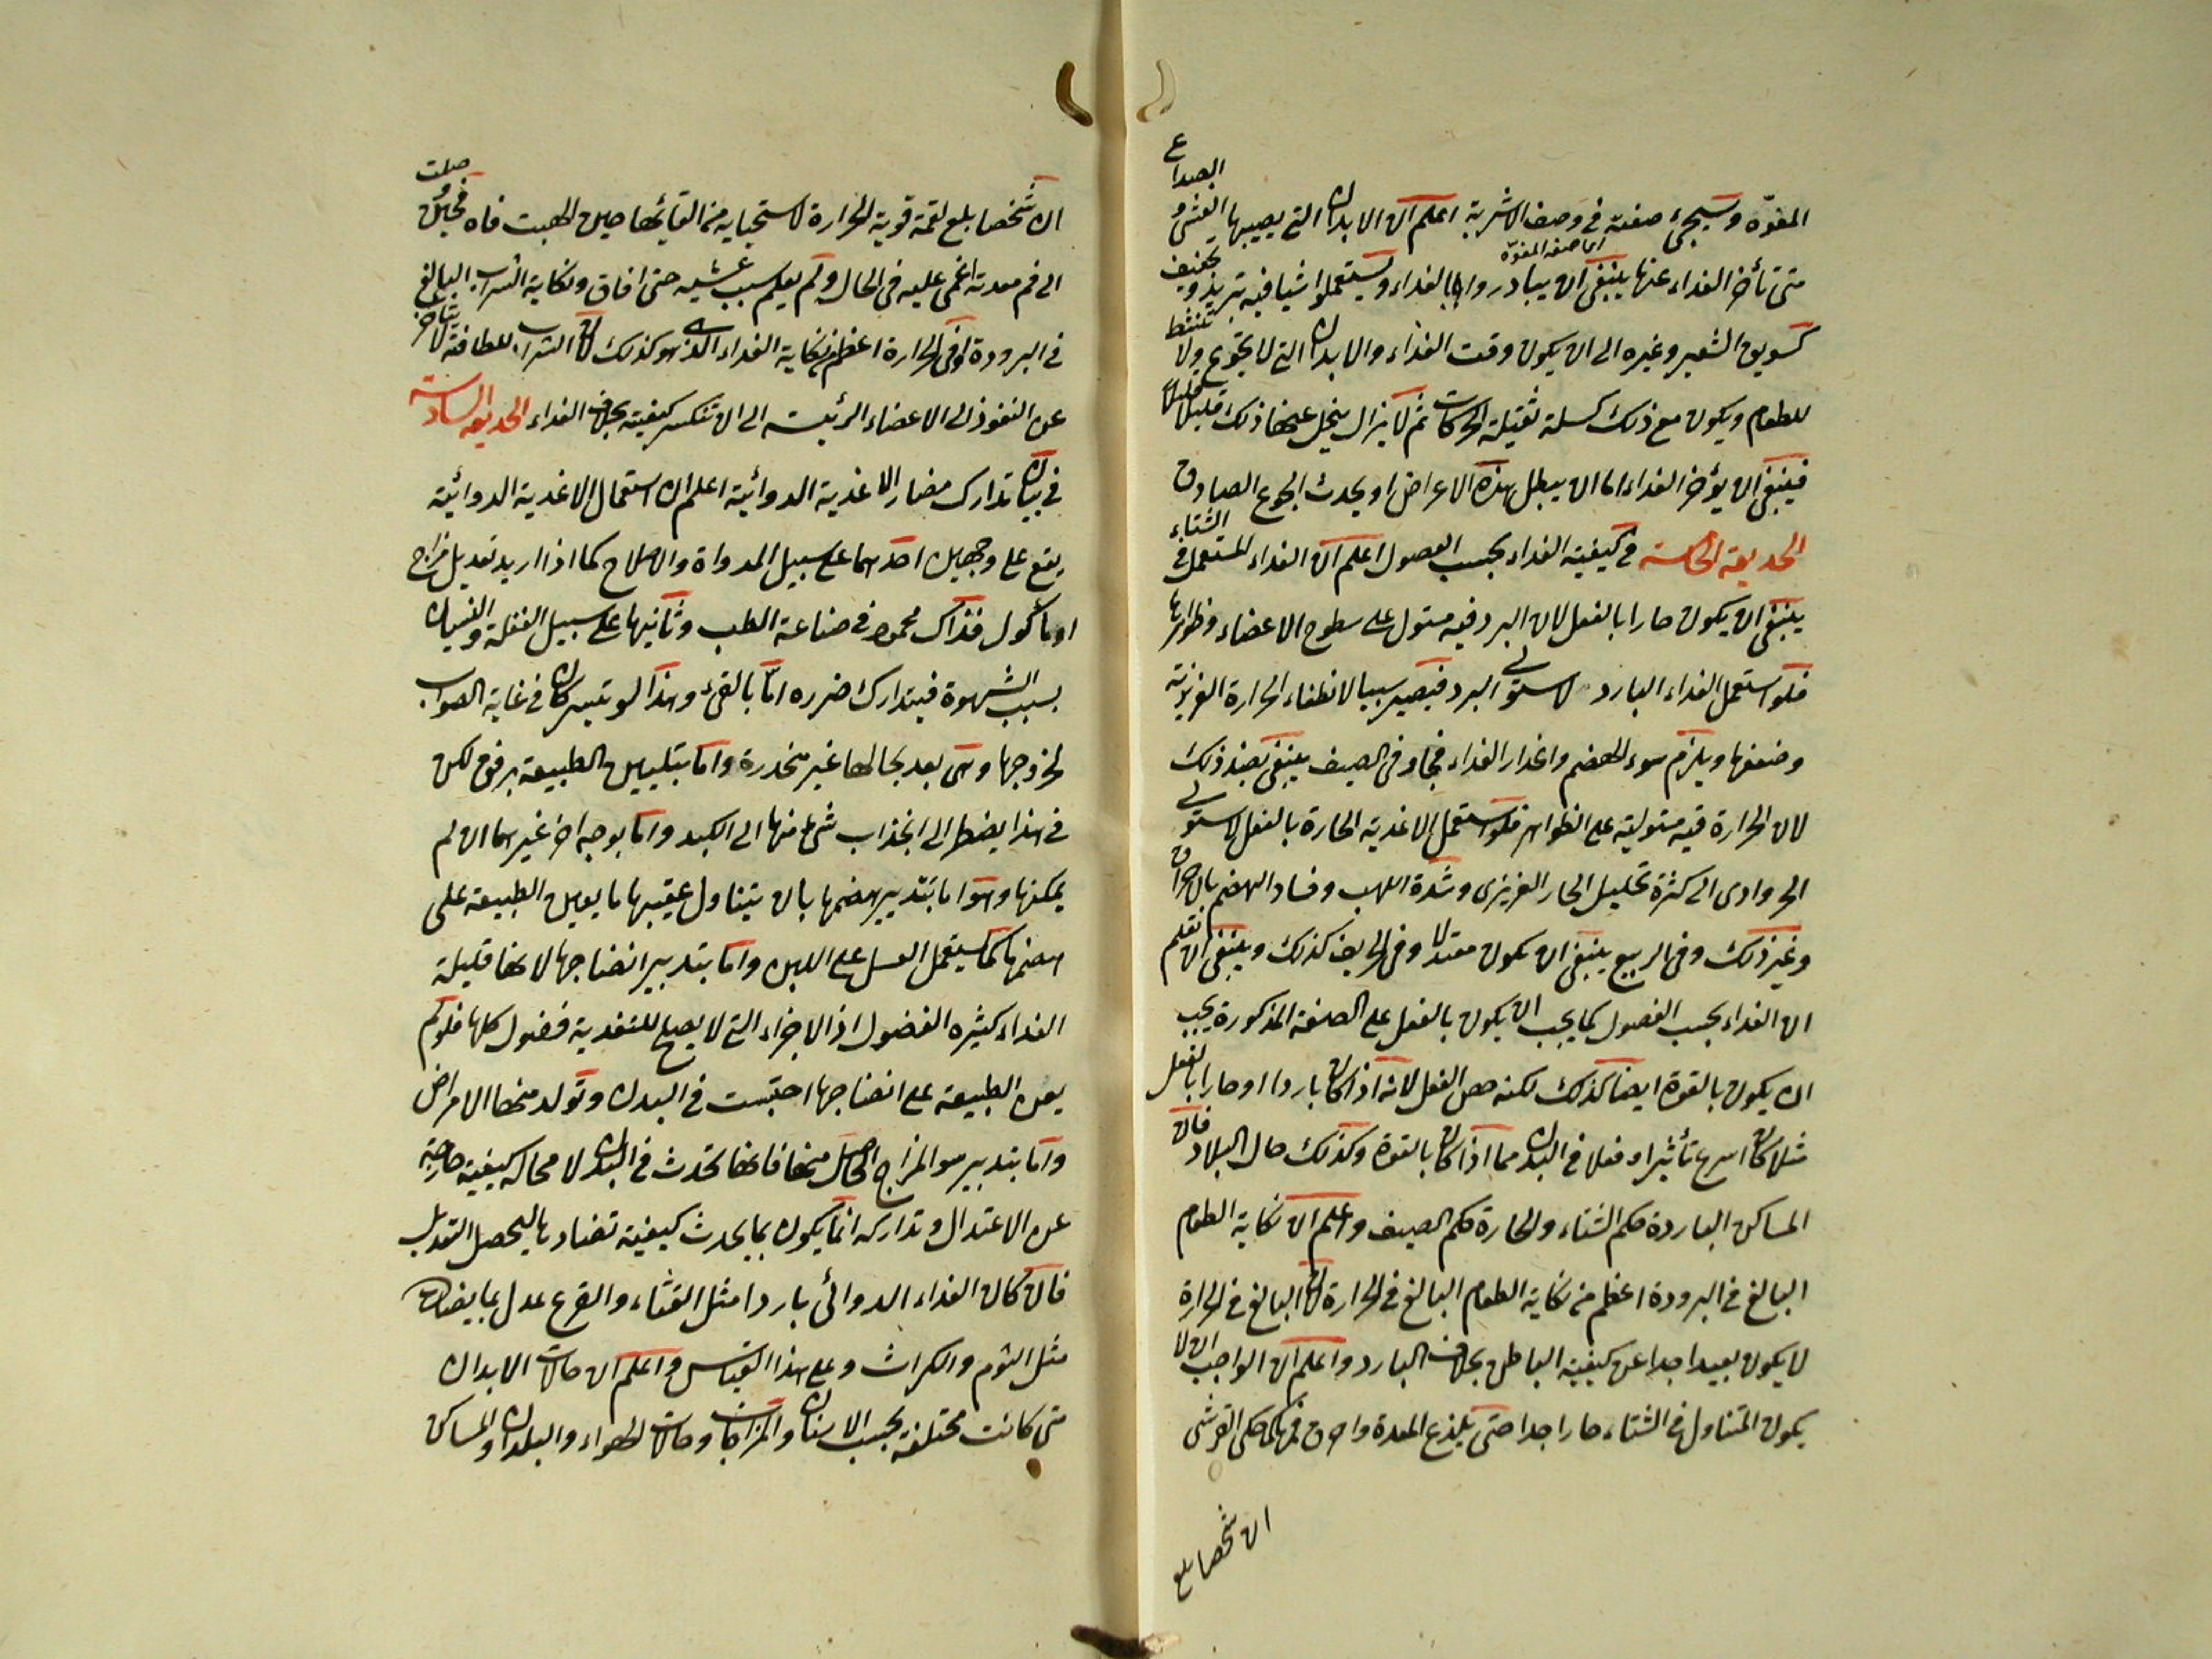 المفوّه وسيجئ صفته في وصف الاشربة اعلم ان الابدان التي يصيبها الغشي و الصداع
اى صفة المفوّه
متى تأخر الغداء عنها ينبغي ان يبادروا بالغداء ويستعملوا شيا فيه تبريد وتجفيف
كسويق الشعير وغيره الى ان يكون وقت الغذاء والابدان التي لا تجوع ولا تنشط
للطعام ويكون مع ذلك كسلة ثقيلة الحركات ثم لا يزال ينحل عنها ذلك قليلا قليلا
فينبغي ان يؤخر الغداء الى ان يبطل هذه الاعراض او يحدث الجوع الصادق
الحديقة الخامسة في كيفية الغداء بحسب الفصول اعلم ان الغداء المستعمل في الشتاء
ينبغي ان يكون حارا بالفعل لان البرد فيه مستول على سطوح الاعضاء وظواهرها
فلو استعمل الغداء البارد لاستولى البرد فيصير سببا لانطفاء الحرارة الغريزية
وضعفها ويلزم سوء الهضم وانحدار الغداء فجا وفي الصيف ينبغي بضد ذلك
لان الحرارة فيه مستولية على الظواهر فلو استعمل الاغدية الحارة بالفعل لاستولى
الحر وادى الى كثرة تحليل الحار الغريزى وشدة اللهب وفساد الهضم بالاحراق
وغير ذلك وفي الربيع ينبغي ان يكون معتدلا وفي الخريف كذلك وينبغي ان تعلم
ان الغداء بحسب الفصول كما يجب ان يكون بالفعل على الصفة المذكورة يجب
ان يكون بالقوة ايضا كذلك لكنه خص الفعل لانه اذا كان باردا او حارا بالفعل
مثلا كان اسرع تأثيرا وفعلا في البدن مما اذا كان بالقوة وكذلك حال البلاد فان
المساكن الباردة حكم الشتاء والحارة حكم الصيف واعلم ان نكاية الطعام
البالغ في البرودة اعظم من نكاية الطعام البالغ في الحرارة لان البالغ في الحرارة
لا يكون بعيدا جدا عن كيفية الباطن بخلاف البارد واعلم ان الواجب ان لا
يكون المتناول في الشتاء حارا جدا حتى يلذع المعدة واحرق فمها كما حكى القرشي
ان شخصا بلع
ان شخصا بلع لقمة قوية الحرارة لاستحيايه من القائها حين الهبت فاه فحين وصلت
الى فم معدته اغمى عليه في الحال ولم يعلم سبب غشيه حتى افاق ونكاية الشراب البالغ
في البرودة او في الحرارة اعظم من نكاية الغداء الذي هو كذلك لان الشراب للطافته لا يتأخر
عن النفوذ الى الاعضاء الرئيسة الى ان تنكسر كيفيته بخلاف الغداء الحديقة السادسة
في بيان تدارك مضار الاغدية الدوائية اعلم ان استعمال الاغدية الدوائية
يقع على وجهين احدهما على سبيل المداواة والاصلاح كما اذا اريد تعديل مزاج
او مأكول فذاك محمود في صناعة الطب وثانيها على سبيل الغفلة والنسيان
بسبب الشهوة فيتدارك ضرره امّا بالقئ وهذا لو تيسر كان في غاية الصواب
لخروجها وهى بعد بحالها غير منحدرة واما بتليين الطبيعة برفق لكن
في هذا يضطر الى انجذاب شئ منها الى الكبد واما بوجه اخر غيرهما ان لم
يمكنها وهو اما بتدبير هضمها بان يتناول عقيبها ما يعين الطبيعة على
هضمها كما يستعمل العسل على اللبن واما بتدبير انضاجها لانها قليلة
الغداء كثيره الفضول اذ الاجزاء التي لا يصلح للتغدية فضول كلها فلو لم
يعن الطبيعة على انضاجها احتبست في البدن وتولد منها الامراض
واما بتدبير سو المزاج الحاصل منها فانها تحدث في البدن لا محاله كيفية خارجة
عن الاعتدال وتداركه انما يكون بما يحدث كيفية تضاد ها ليحصل التعديل
فان كان الغداء الدوائى باردا مثل القثاء والقرع عدل بما يضاده
مثل الثوم والكراث وعلى هذا القياس واعلم ان حالات الابدان
متى كانت مختلفة بحسب الاسنان والمزاجات وحالات الهواء والبلدان والمساكن